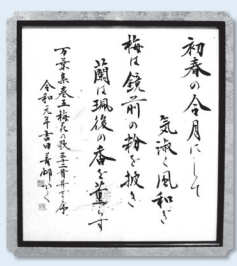 初春の令月にして
気淑く風和ぎ
梅は鏡前の粉を披き
蘭は珮後の香を薫らす
万葉集巻五梅花の歌三十二首并せて序
令和元年